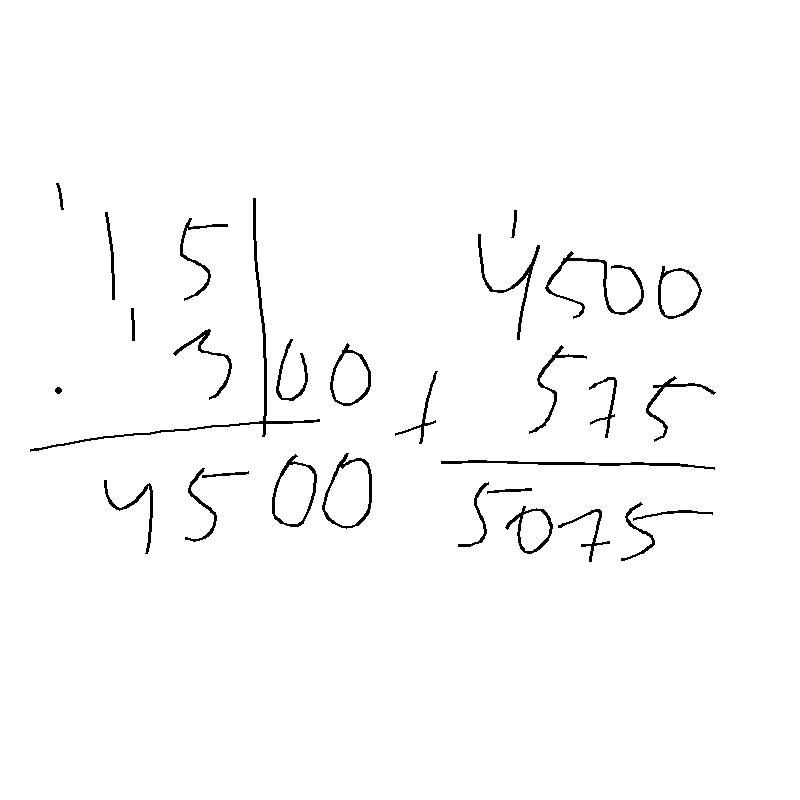 1
15
1
. 300
4500
1
4500
+ 575
5075